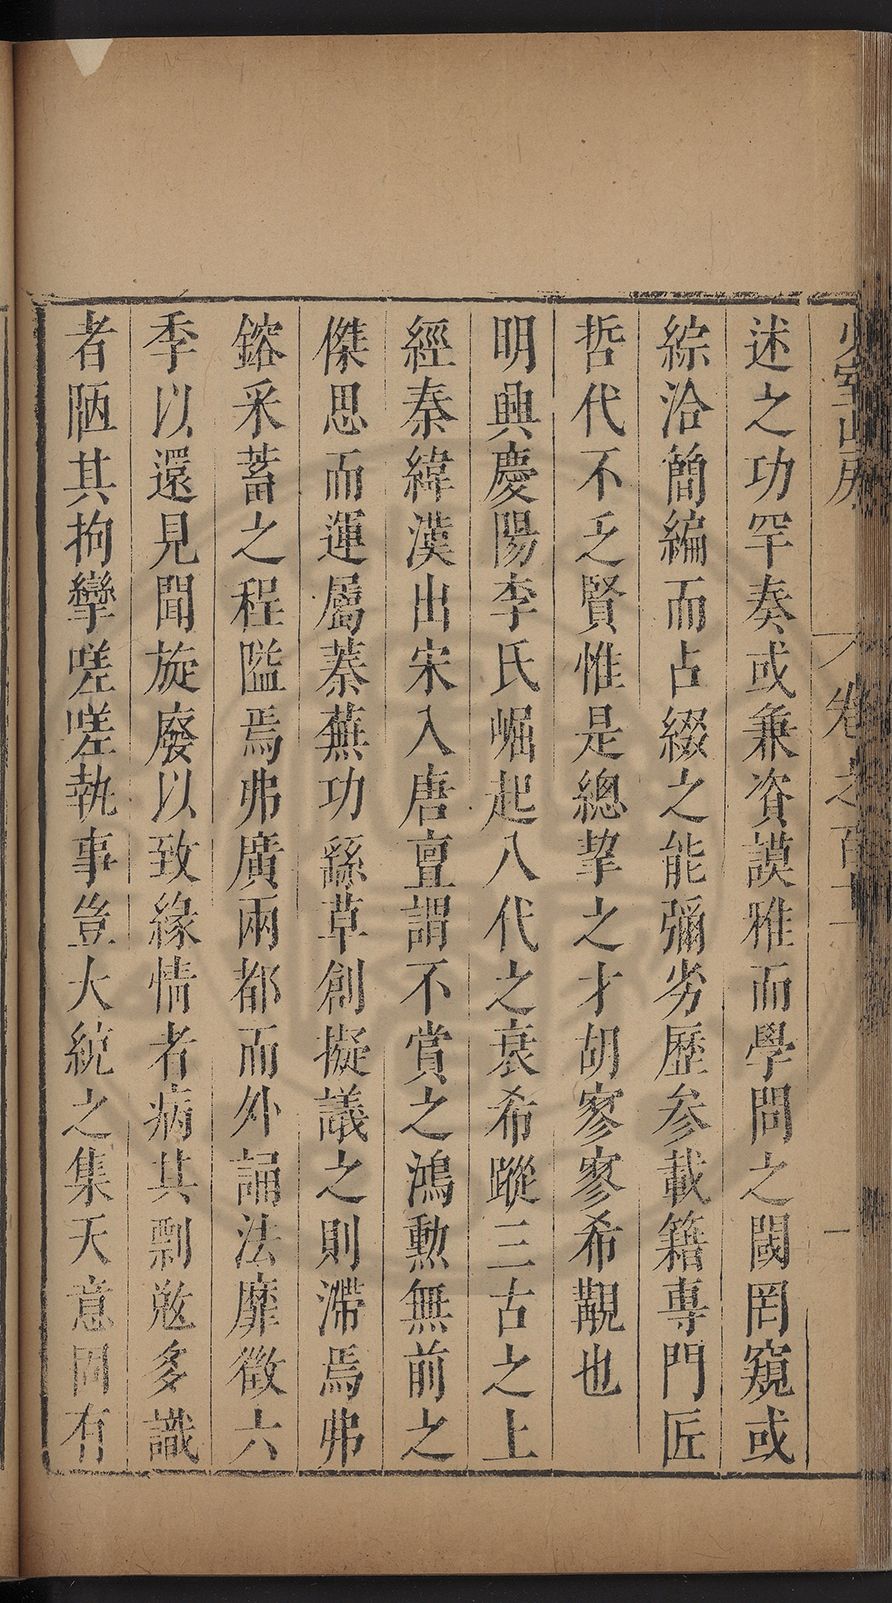 少室山房
卷之百十一
一
述之功罕奏或兼資謨雅而學問之閾罔窺或
綜洽簡編而占綴之能彌劣歷參載籍專門匠
哲代不乏賢惟是總挈之才胡寥寥希覯也
明興慶陽李氏崛起八代之衰希蹤三古之上
經秦緯漢出宋入唐亶謂不賞之鴻勳無前之
傑思而運屬蓁蕪功繇草創擬議之則滯焉弗
鎔采蓄之程隘焉弗廣兩都而外誦法靡徵六
季以還見聞旋廢以致緣情者病其剽邀多識
者陋其拘攣嗟嗟執事豈大統之集天意固有